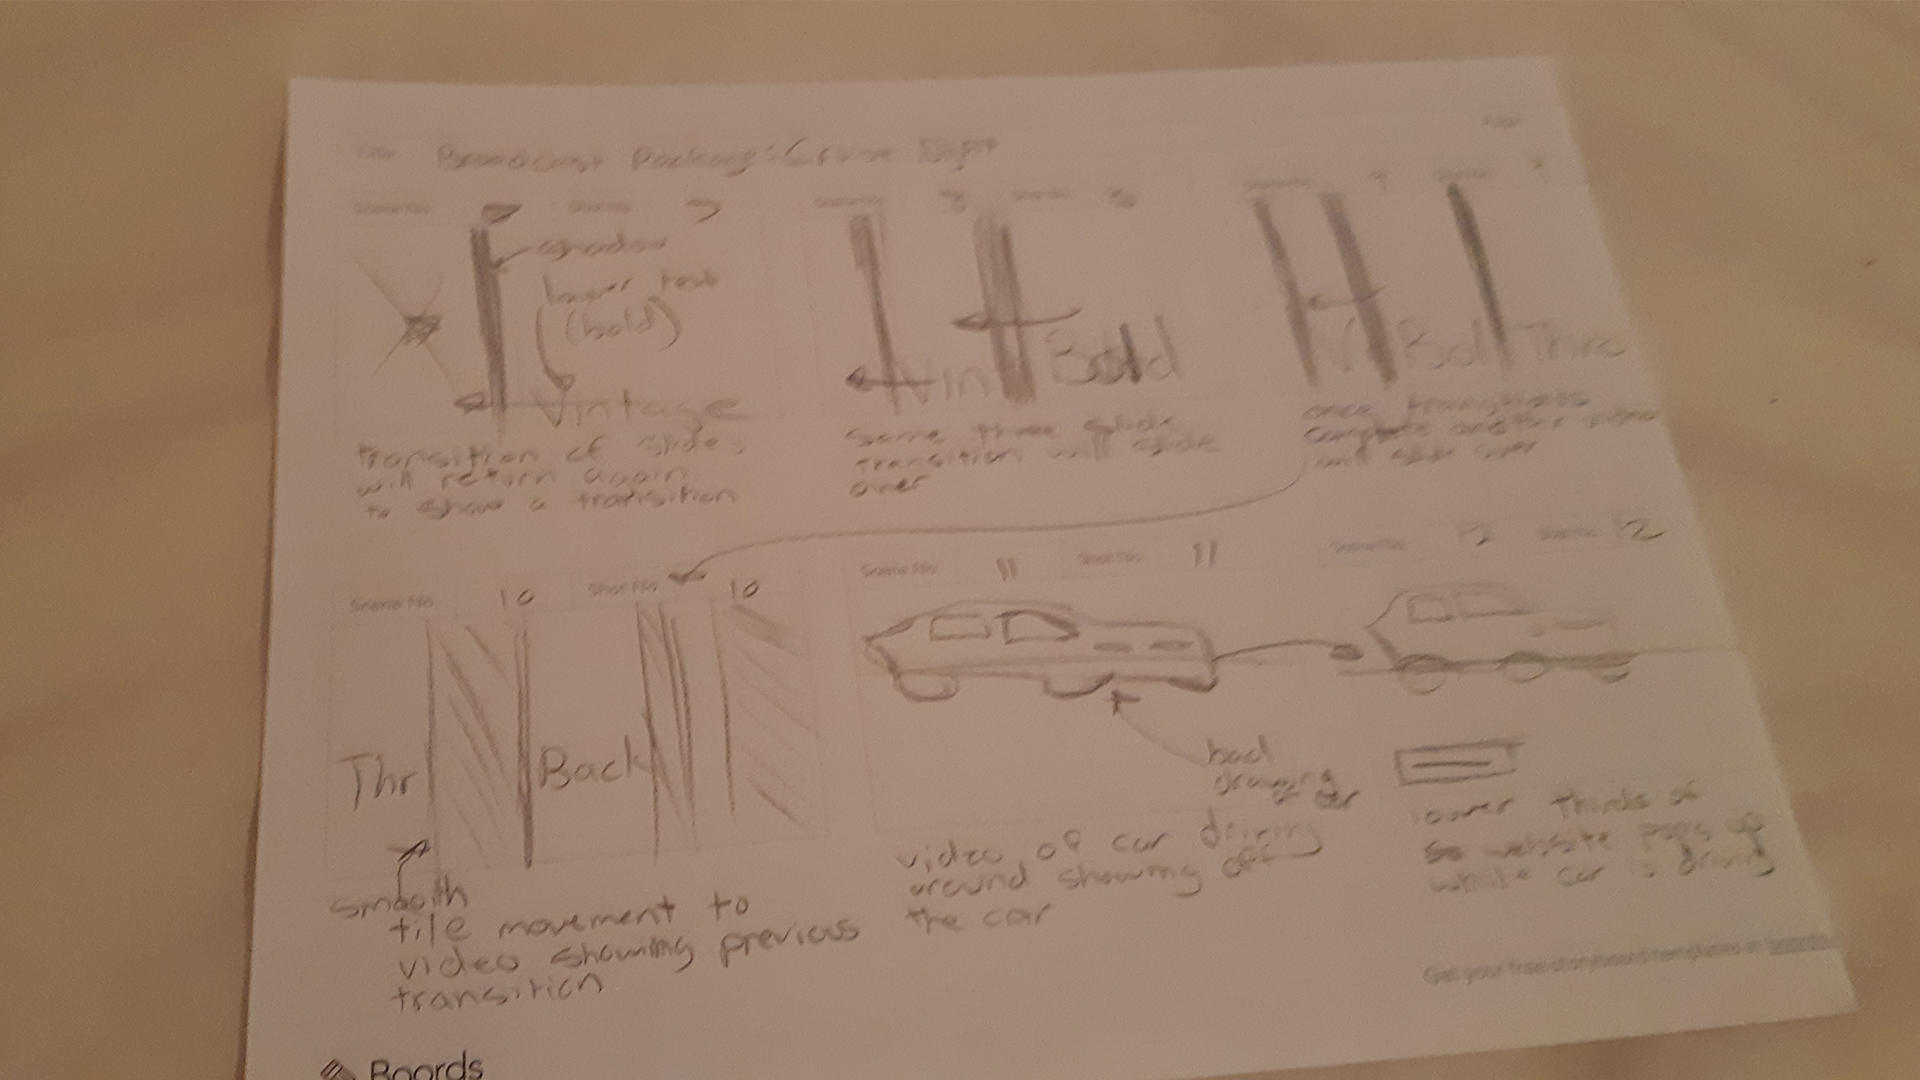 Title Broadcast Package: Cruise Night
Page
Scene No 7 Shot No 7
shadow
lower text
(bold)
Vintage
transition of slides,
will return again
to show a transition
Scene No 8 Shot No 8
Vin Bold
Same three slide
transition will slide
over
9
V Bol Thro
once transitions
complete another video
will slide over
Scene No 10 Shot No 10
Thr Back
smooth
tile movement to
video showing previous
transition
Scene No 11 Shot No 11
bad
drawing
of car
video of car driving
around showing off
the car
Scene No 12 Shot No 12
lower thirds of
website pops up
while car is driving
Get your free storyboard templates at
Boords